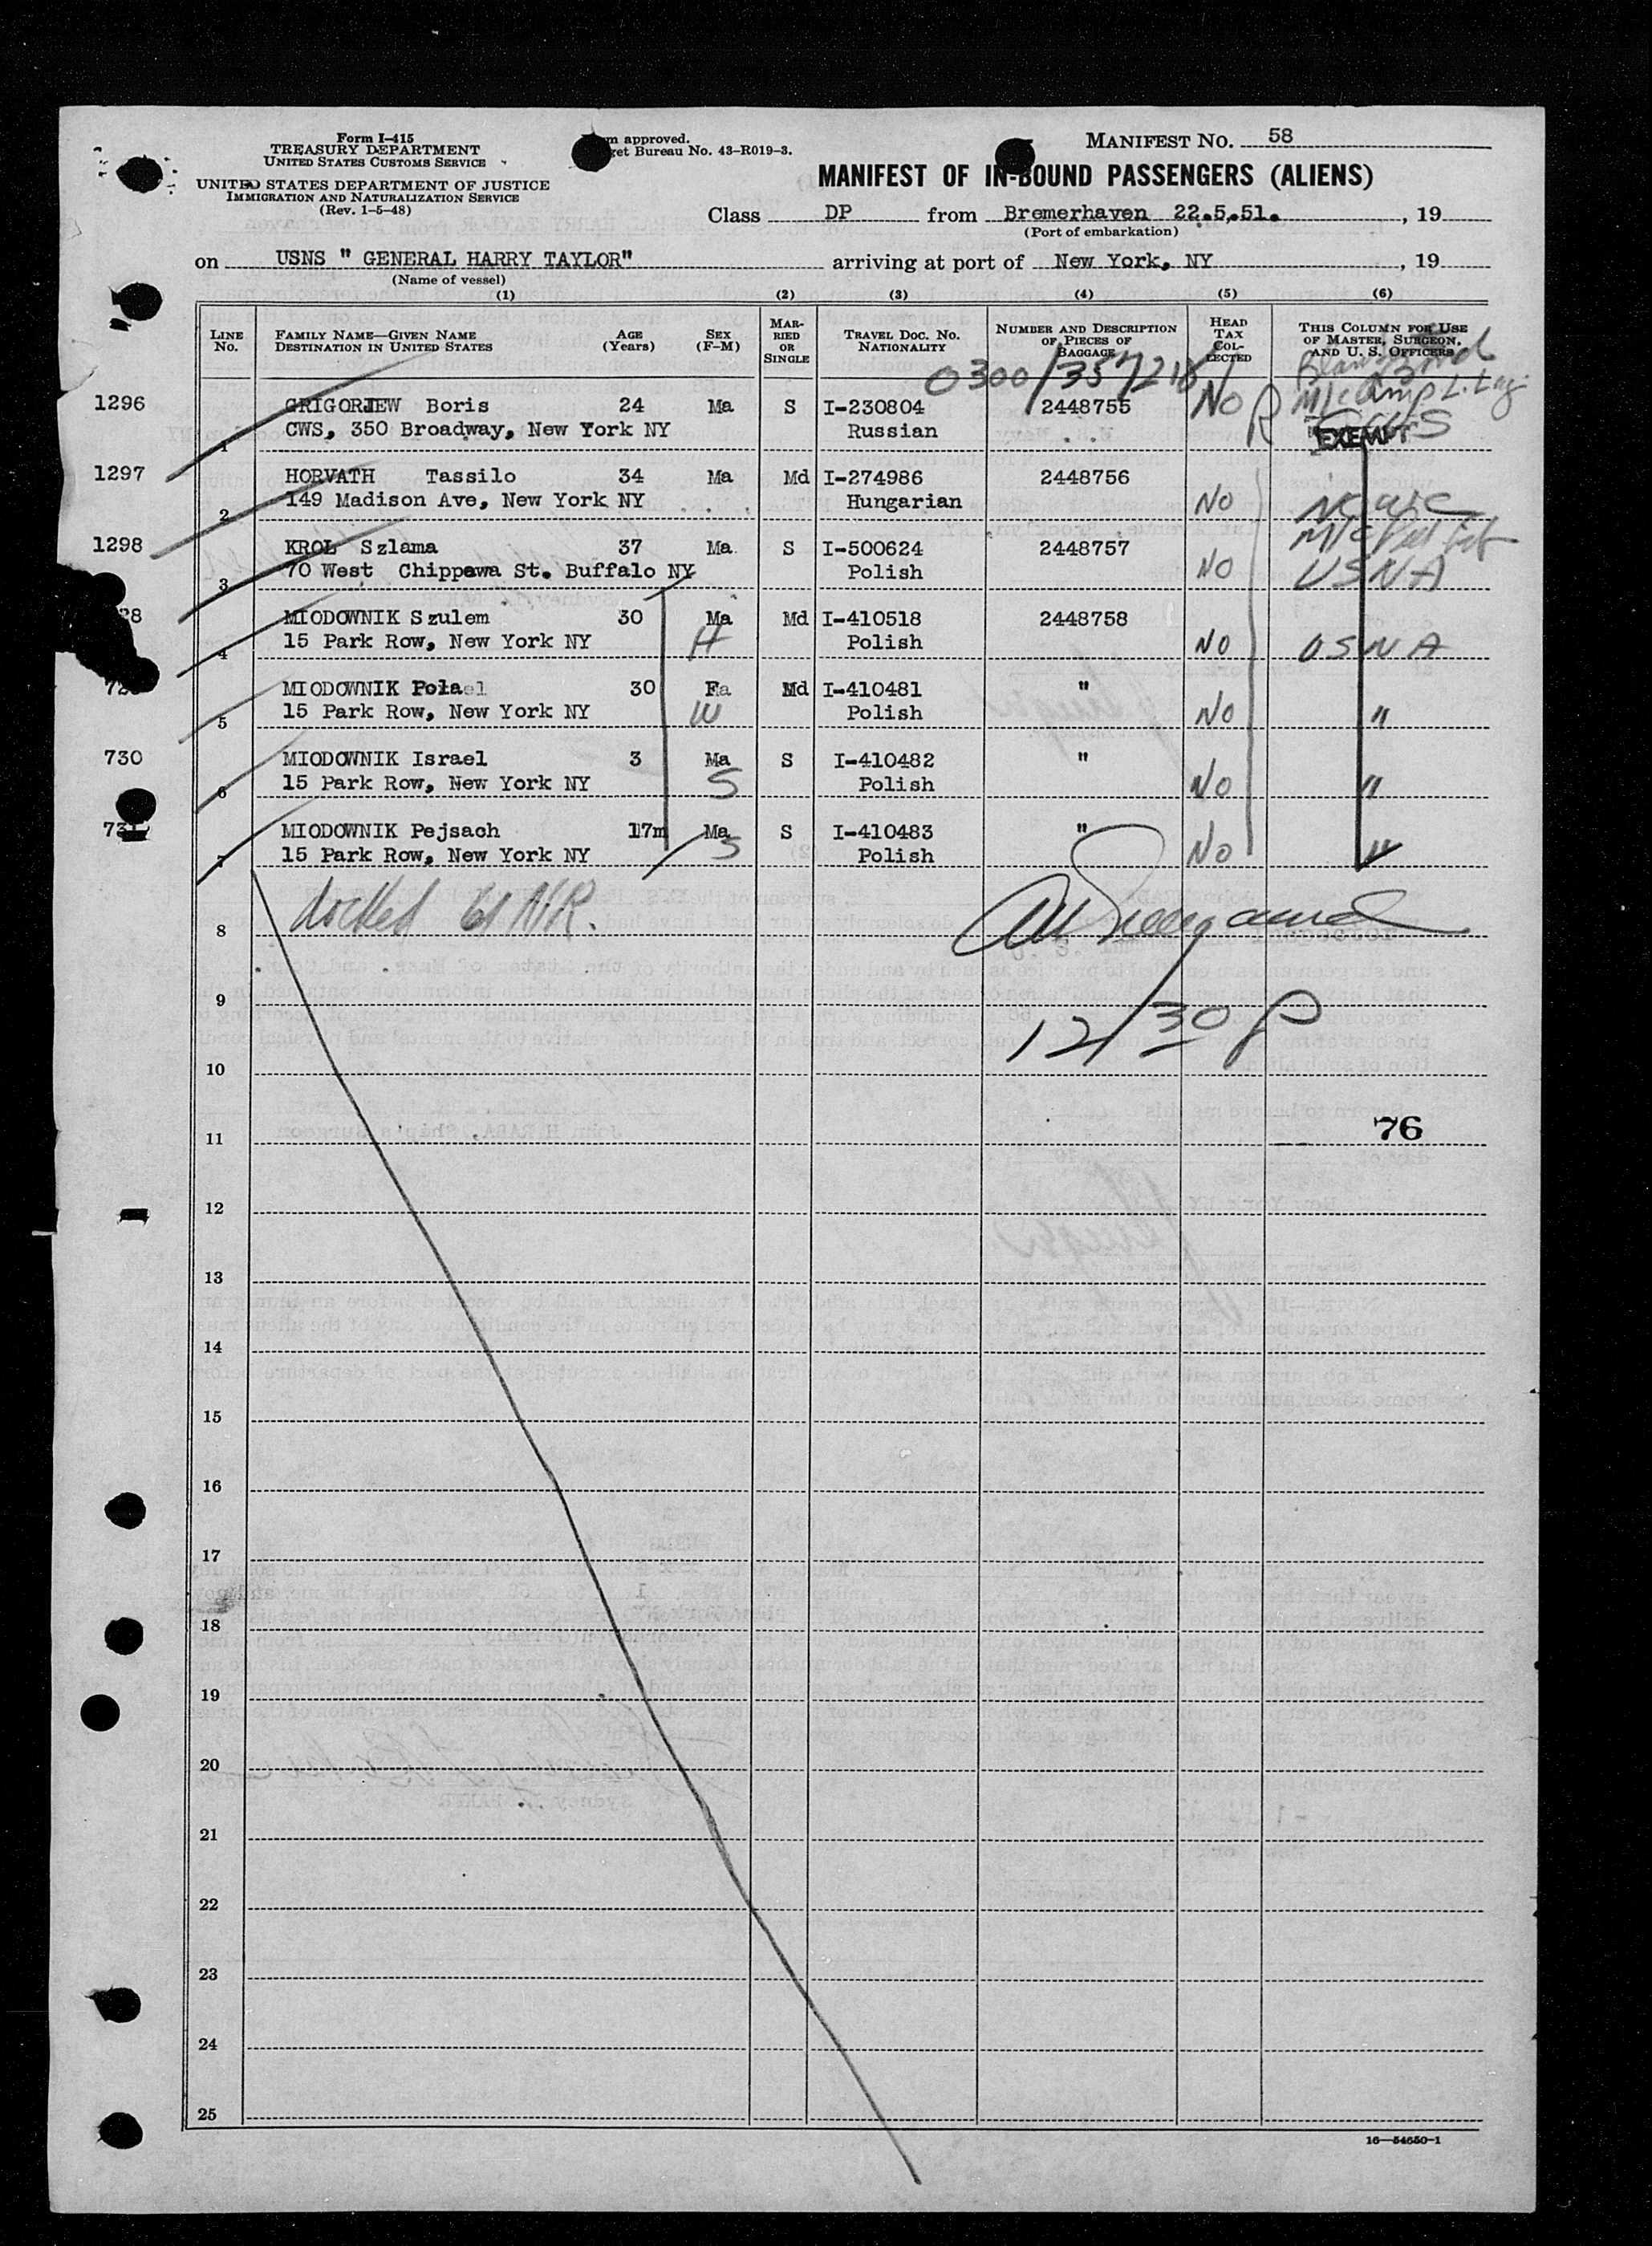 Form I-415
TREASURY DEPARTMENT
UNITED STATES CUSTOMS SERVICE
UNITED STATES DEPARTMENT OF JUSTICE
IMMIGRATION AND NATURALIZATION SERVICE
(Rev. 1-5-48)
approved.
Bureau No. 43-R019-3.
MANIFEST NO. 58
MANIFEST OF IN-BOUND PASSENGERS (ALIENS)
Class DP from Bremerhaven 22.5.51. , 19
(Port of embarkation)
on USNS " GENERAL HARRY TAYLOR" arriving at port of New York, NY , 19
(Name of vessel)
(1) (2) (3) (4) (5) (6)
LINE No. FAMILY NAME—GIVEN NAME DESTINATION IN UNITED STATES AGE (Years) SEX (F-M) MARRIED OR SINGLE TRAVEL DOC. NO. NATIONALITY NUMBER AND DESCRIPTION OF PIECES OF BAGGAGE HEAD TAX COLLECTED THIS COLUMN FOR USE OF MASTER, SURGEON, AND U. S. OFFICERS
0300/357218
1296 GRIGORJEW Boris 24 Ma S I-230804 2448755 No R
1 CWS, 350 Broadway, New York NY Russian EXEMPT
1297 HORVATH Tassilo 34 Ma Md I-274986 2448756
2 149 Madison Ave, New York NY Hungarian No NCWC
1298 KROL Szlama 37 Ma S I-500624 2448757
3 70 West Chippewa St. Buffalo NY Polish No USNA
28 MIODOWNIK Szulem 30 Ma Md I-410518 2448758
4 15 Park Row, New York NY H Polish No USNA
MIODOWNIK Polael 30 Fa Md I-410481 "
5 15 Park Row, New York NY W Polish No "
730 MIODOWNIK Israel 3 Ma S I-410482 "
6 15 Park Row, New York NY S Polish No "
731 MIODOWNIK Pejsach 17m Ma S I-410483 "
7 15 Park Row, New York NY S Polish No "
8 docked 61 N.R.
9
12/30 P
10
11 76
12
13
14
15
16
17
18
19
20
21
22
23
24
25
16—54650-1